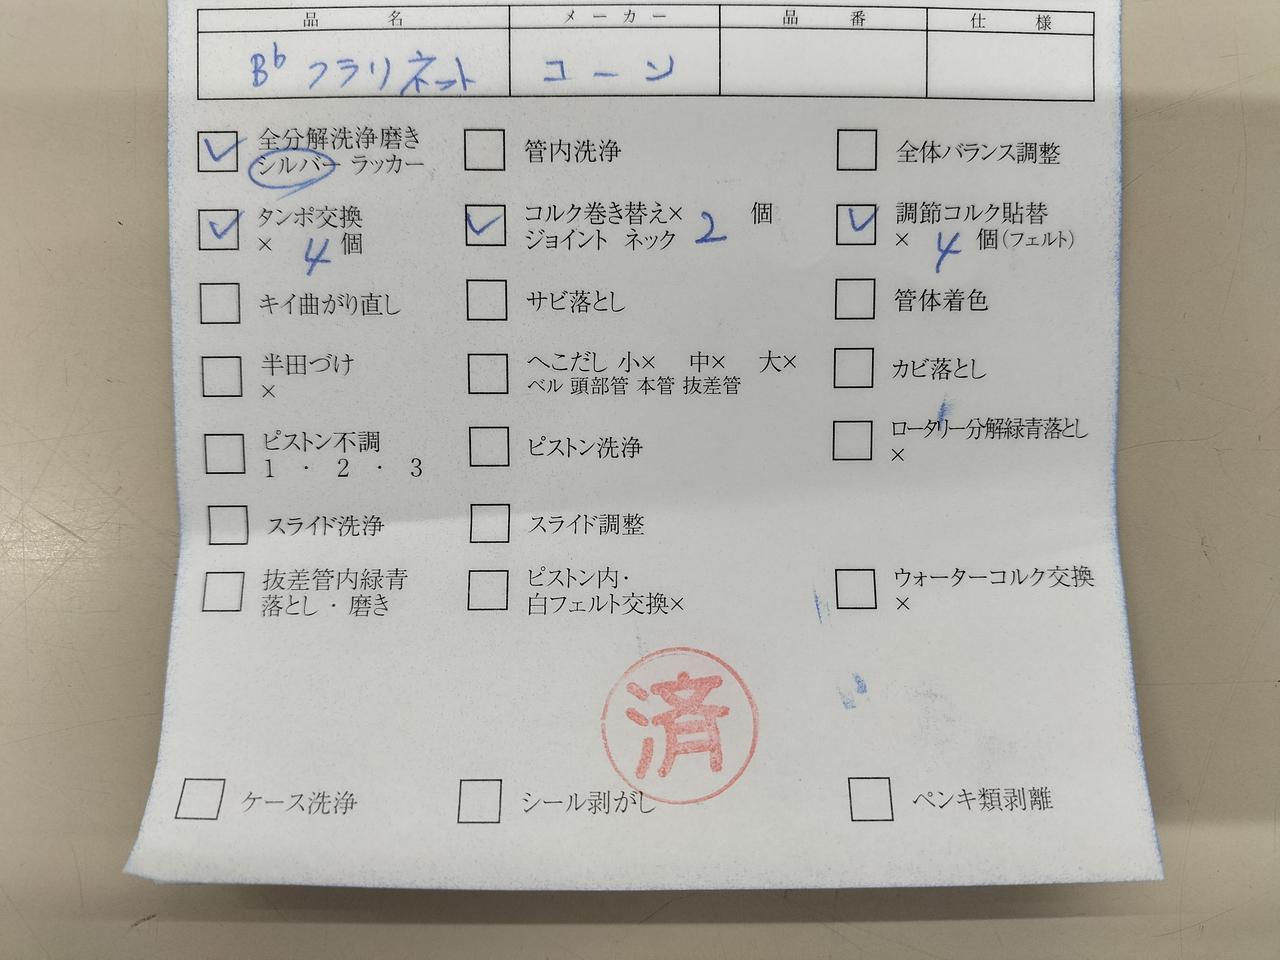 品名 メーカー 品番 仕様
B♭ フラリネット コーン
全分解洗浄磨き
シルバー ラッカー
管内洗浄
全体バランス調整
タンポ交換
× 4 個
コルク巻き替え× 2 個
ジョイント ネック
調節コルク貼替
× 4 個(フェルト)
キイ曲がり直し
サビ落とし
管体着色
半田づけ
×
へこだし 小× 中× 大×
ベル 頭部管 本管 抜差管
カビ落とし
ピストン不調
1 · 2 · 3
ピストン洗浄
ロータリー分解緑青落とし
×
スライド洗浄
スライド調整
抜差管内緑青
落とし · 磨き
ピストン内·
白フェルト交換×
ウォーターコルク交換
×
済
ケース洗浄
シール剥がし
ペンキ類剥離